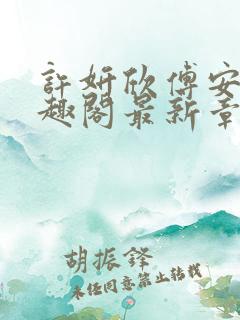 許妍欣傅安
趣閣最新章
胡振鐸
未經同意禁止轉載